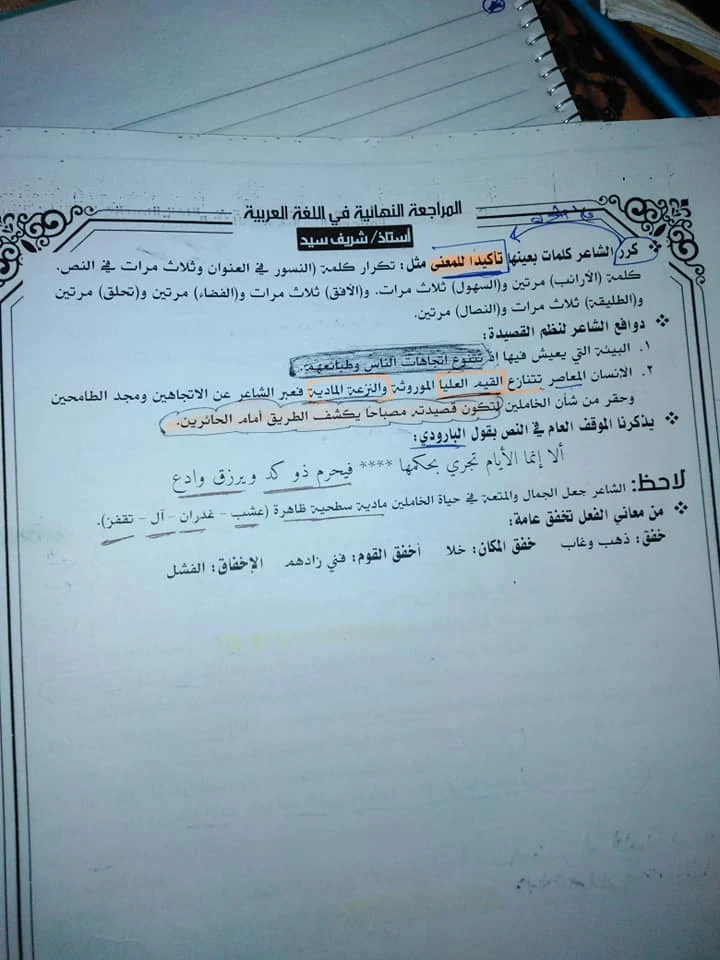 المراجعة النهائية في اللغة العربية
أستاذ/ شريف سيد
كرر الشاعر كلمات بعينها تأكيدا للمعنى مثل: تكرار كلمة (النسور في العنوان وثلاث مرات في النص.
كلمة (الأرانب) مرتين و(السهول) ثلاث مرات. و(الأفق) ثلاث مرات و(الفضاء) مرتين و(تحلق) مرتين
و(الطليقة) ثلاث مرات و(النصال) مرتين.
دوافع الشاعر لنظم القصيدة:
١. البيئة التي يعيش فيها إذ تتنوع اتجاهات الناس وطبائعهم.
٢. الانسان المعاصر تتنازع القيم العليا الموروثة والنزعة المادية فعبر الشاعر عن الاتجاهين ومجد الطامحين
وحقر من شأن الخاملين لتكون قصيدته مصباحا يكشف الطريق أمام الحائرين.
يذكرنا الموقف العام في النص بقول البارودي:
ألا إنما الأيام تجري بحكمها **** فيحرم ذو كد ويرزق وادع
لاحظ: الشاعر جعل الجمال والمتعة في حياة الخاملين مادية سطحية ظاهرة (عشب - غدران - آل - تقفز).
من معاني الفعل تخفق عامة:
خفق: ذهب وغاب خفق المكان: خلا أخفق القوم: فني زادهم الإخفاق: الفشل